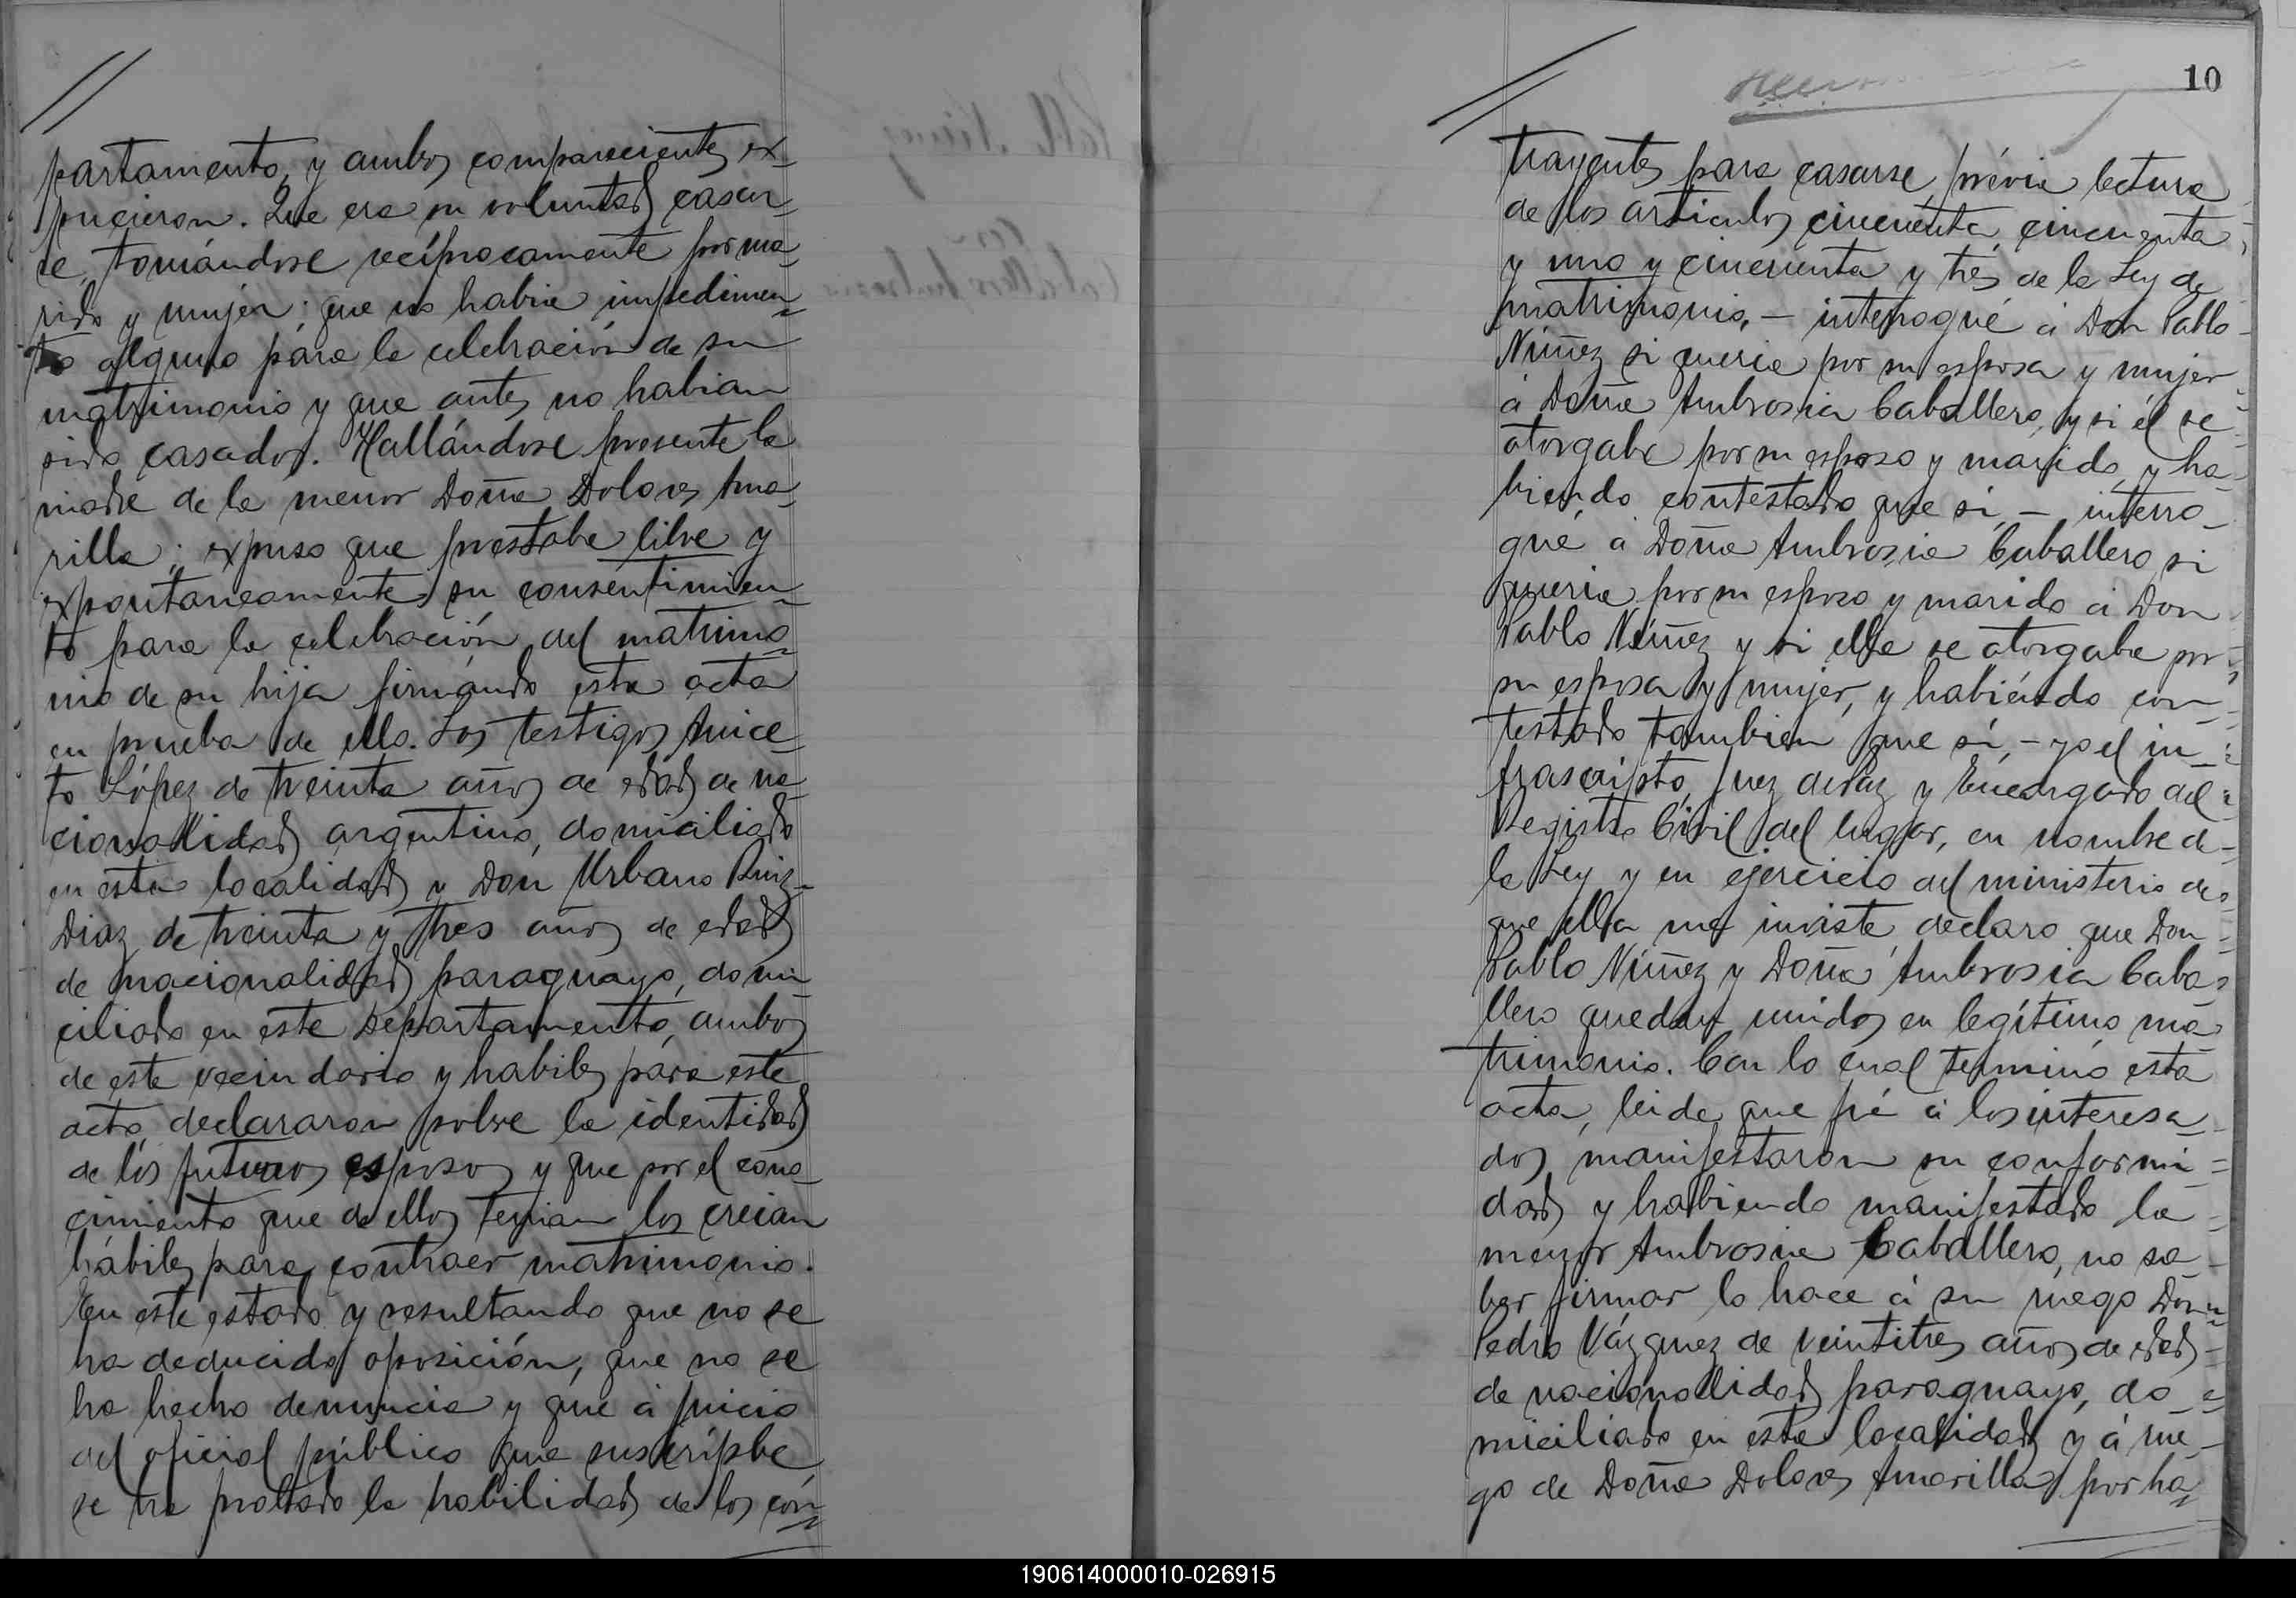 partamento, y ambos comparecientes ex-
pucieron. Que era su voluntad casar-
se, tomándose recíprocamente por ma-
rido y mujer; que no habia impedimen-
to alguno para la celebración de su
matrimonio y que antes no habian
sido casados. Hallándose presente la
madre de la menor Doña Dolores Ama-
rilla; expuso que prestaba libre y
expontaneamente su consentimien-
to para la celebración del matrimo-
nio de su hija firmando esta acta
en prueba de ello. Los testigos Anice-
to López de treinta años de edad de na-
cionalidad argentino, domiciliado
en esta localidad y Don Urbano Ruiz-
Diaz de treinta y tres años de edad
de nacionalidad paraguayo, domi-
ciliado en este Departamento, ambos
de este vecindario y habiles para este
acto, declararon sobre la identidad
de los futuros esposos y que por el cono-
cimiento que de ellos tenian los creian
hábiles para contraer matrimonio.
En este estado y resultando que no se
ha deducido oposición, que no se
ha hecho denuncia y que á juicio
del oficial público que suscripbe,
se ha probado la habilidad de los con-
10
trayentes para casarse, prévia lectura
de los articulos cincuenta, cincuenta
y uno y cincuenta y tres de la Ley de
matrimonio, - interrogué á Don Pablo
Núñez si queria por su esposa y mujer
á Doña Ambrosia Caballero, y si él se
otorgaba por su esposo y marido, y ha-
biendo contestado que si, - interro-
gué á Doña Ambrosia Caballero si
queria por su esposo y marido á Don
Pablo Núñez y si ella se otorgaba por
su esposa y mujer, y habiéndo con-
testado tambien que sí, - yo el in-
frascripto, Juez de Paz y Encargado del
Registro Civil del lugar, en nombre de
la Ley y en ejercicio del ministerio de
que ella me inviste, declaro que Don
Pablo Núñez y Doña Ambrosia Caba-
llero quedan unidos en legítimo ma-
trimonio. Con lo cual terminó esta
acta, leida que fué á los interesa-
dos, manifestaron su conformi-
dad y habiendo manifestado la
menor Ambrosia Caballero, no sa-
ber firmar lo hace á su ruego Don
Pedro Vázquez de veintitres años de edad
de nacionalidad paraguayo, do-
miciliado en esta localidad y á rue-
go de Doña Dolores Amarilla, por ha-
190614000010-026915